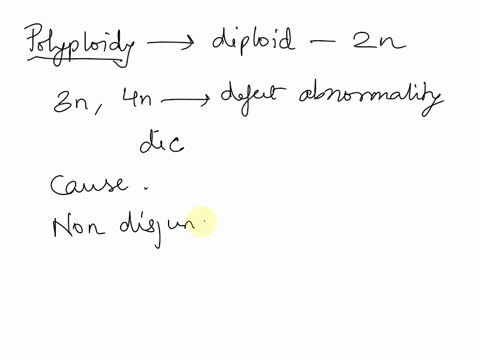 Polyploidy → diploid — 2n
3n, 4n → defect abnormality
Cause.
Non disjun